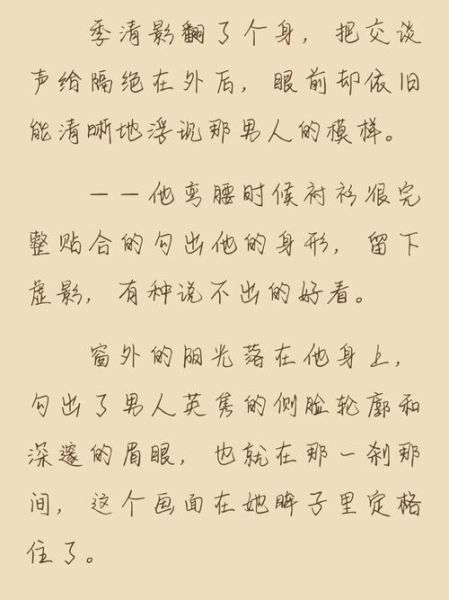 季清影翻了个身，把交谈
声给隔绝在外后，眼前却依旧
能清晰地浮现那男人的模样。
——他弯腰时候衬衫很完
整贴合的勾出他的身形，留下
虚影，有种说不出的好看。
窗外的阳光落在他身上，
勾出了男人英隽的侧脸轮廓和
深邃的眉眼，也就在那一刹那
间，这个画面在她眸子里定格
住了。